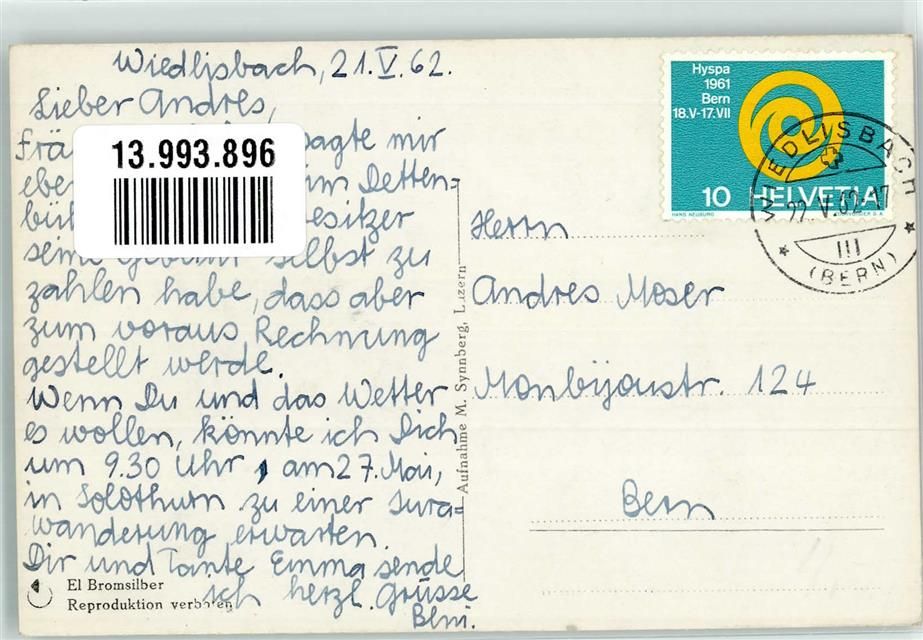 Wiedlisbach, 21.V.62.
Lieber Andres,
sagte mir
Detten=
seine selbst zu
zahlen habe, dass aber
zum voraus Rechnung
gestellt werde.
Wenn Du und das Wetter
es wollen, könnte ich Dich
um 9.30 Uhr, am 27. Mai,
in Solothurn zu einer Jura=
wanderung erwarten.
Dir und Tante Emma sende
ich herzl. Grüsse
Beni.
13.993.896
El Bromsilber
Reproduktion verboten
Aufnahme M. Synnberg, Luzern
Hyspa
1961
Bern
18.V-17.VII
10 HELVETIA
HANS NEUBURG
WIEDLISBACH
22.V.62-17
III
(BERN)
Herrn
Andres Moser
Monbijoustr. 124
Bern